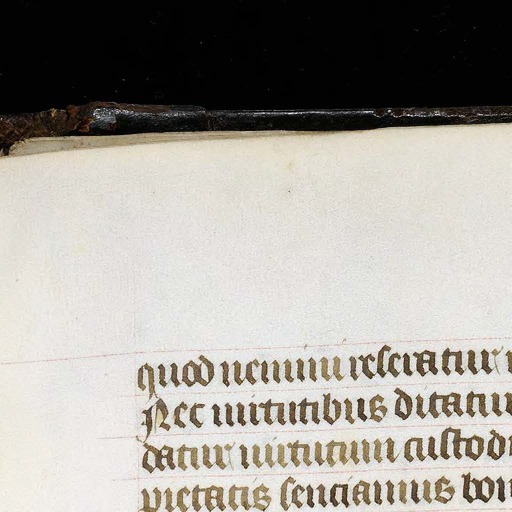 quod nemini reseratur
Nec uirtutibus ditatur
datur uirtutum custodi
pietatis senciamus bon